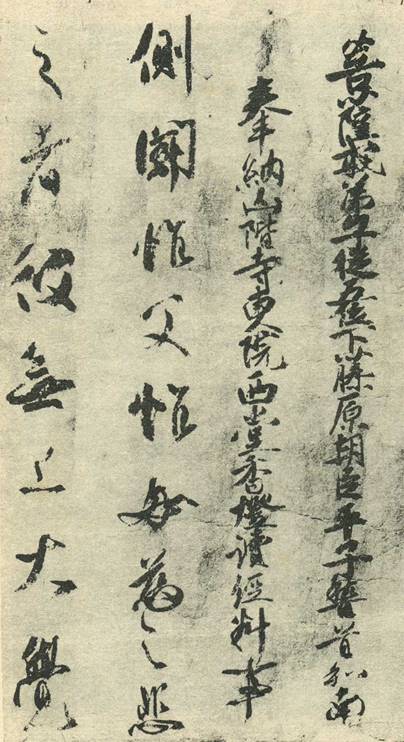 菩薩戒弟子從五位下藤原朝臣平子稽首和南
奉納山階寺東院西堂香燈讀經料事
側聞惟父惟母慈之悲
之者無上大覺